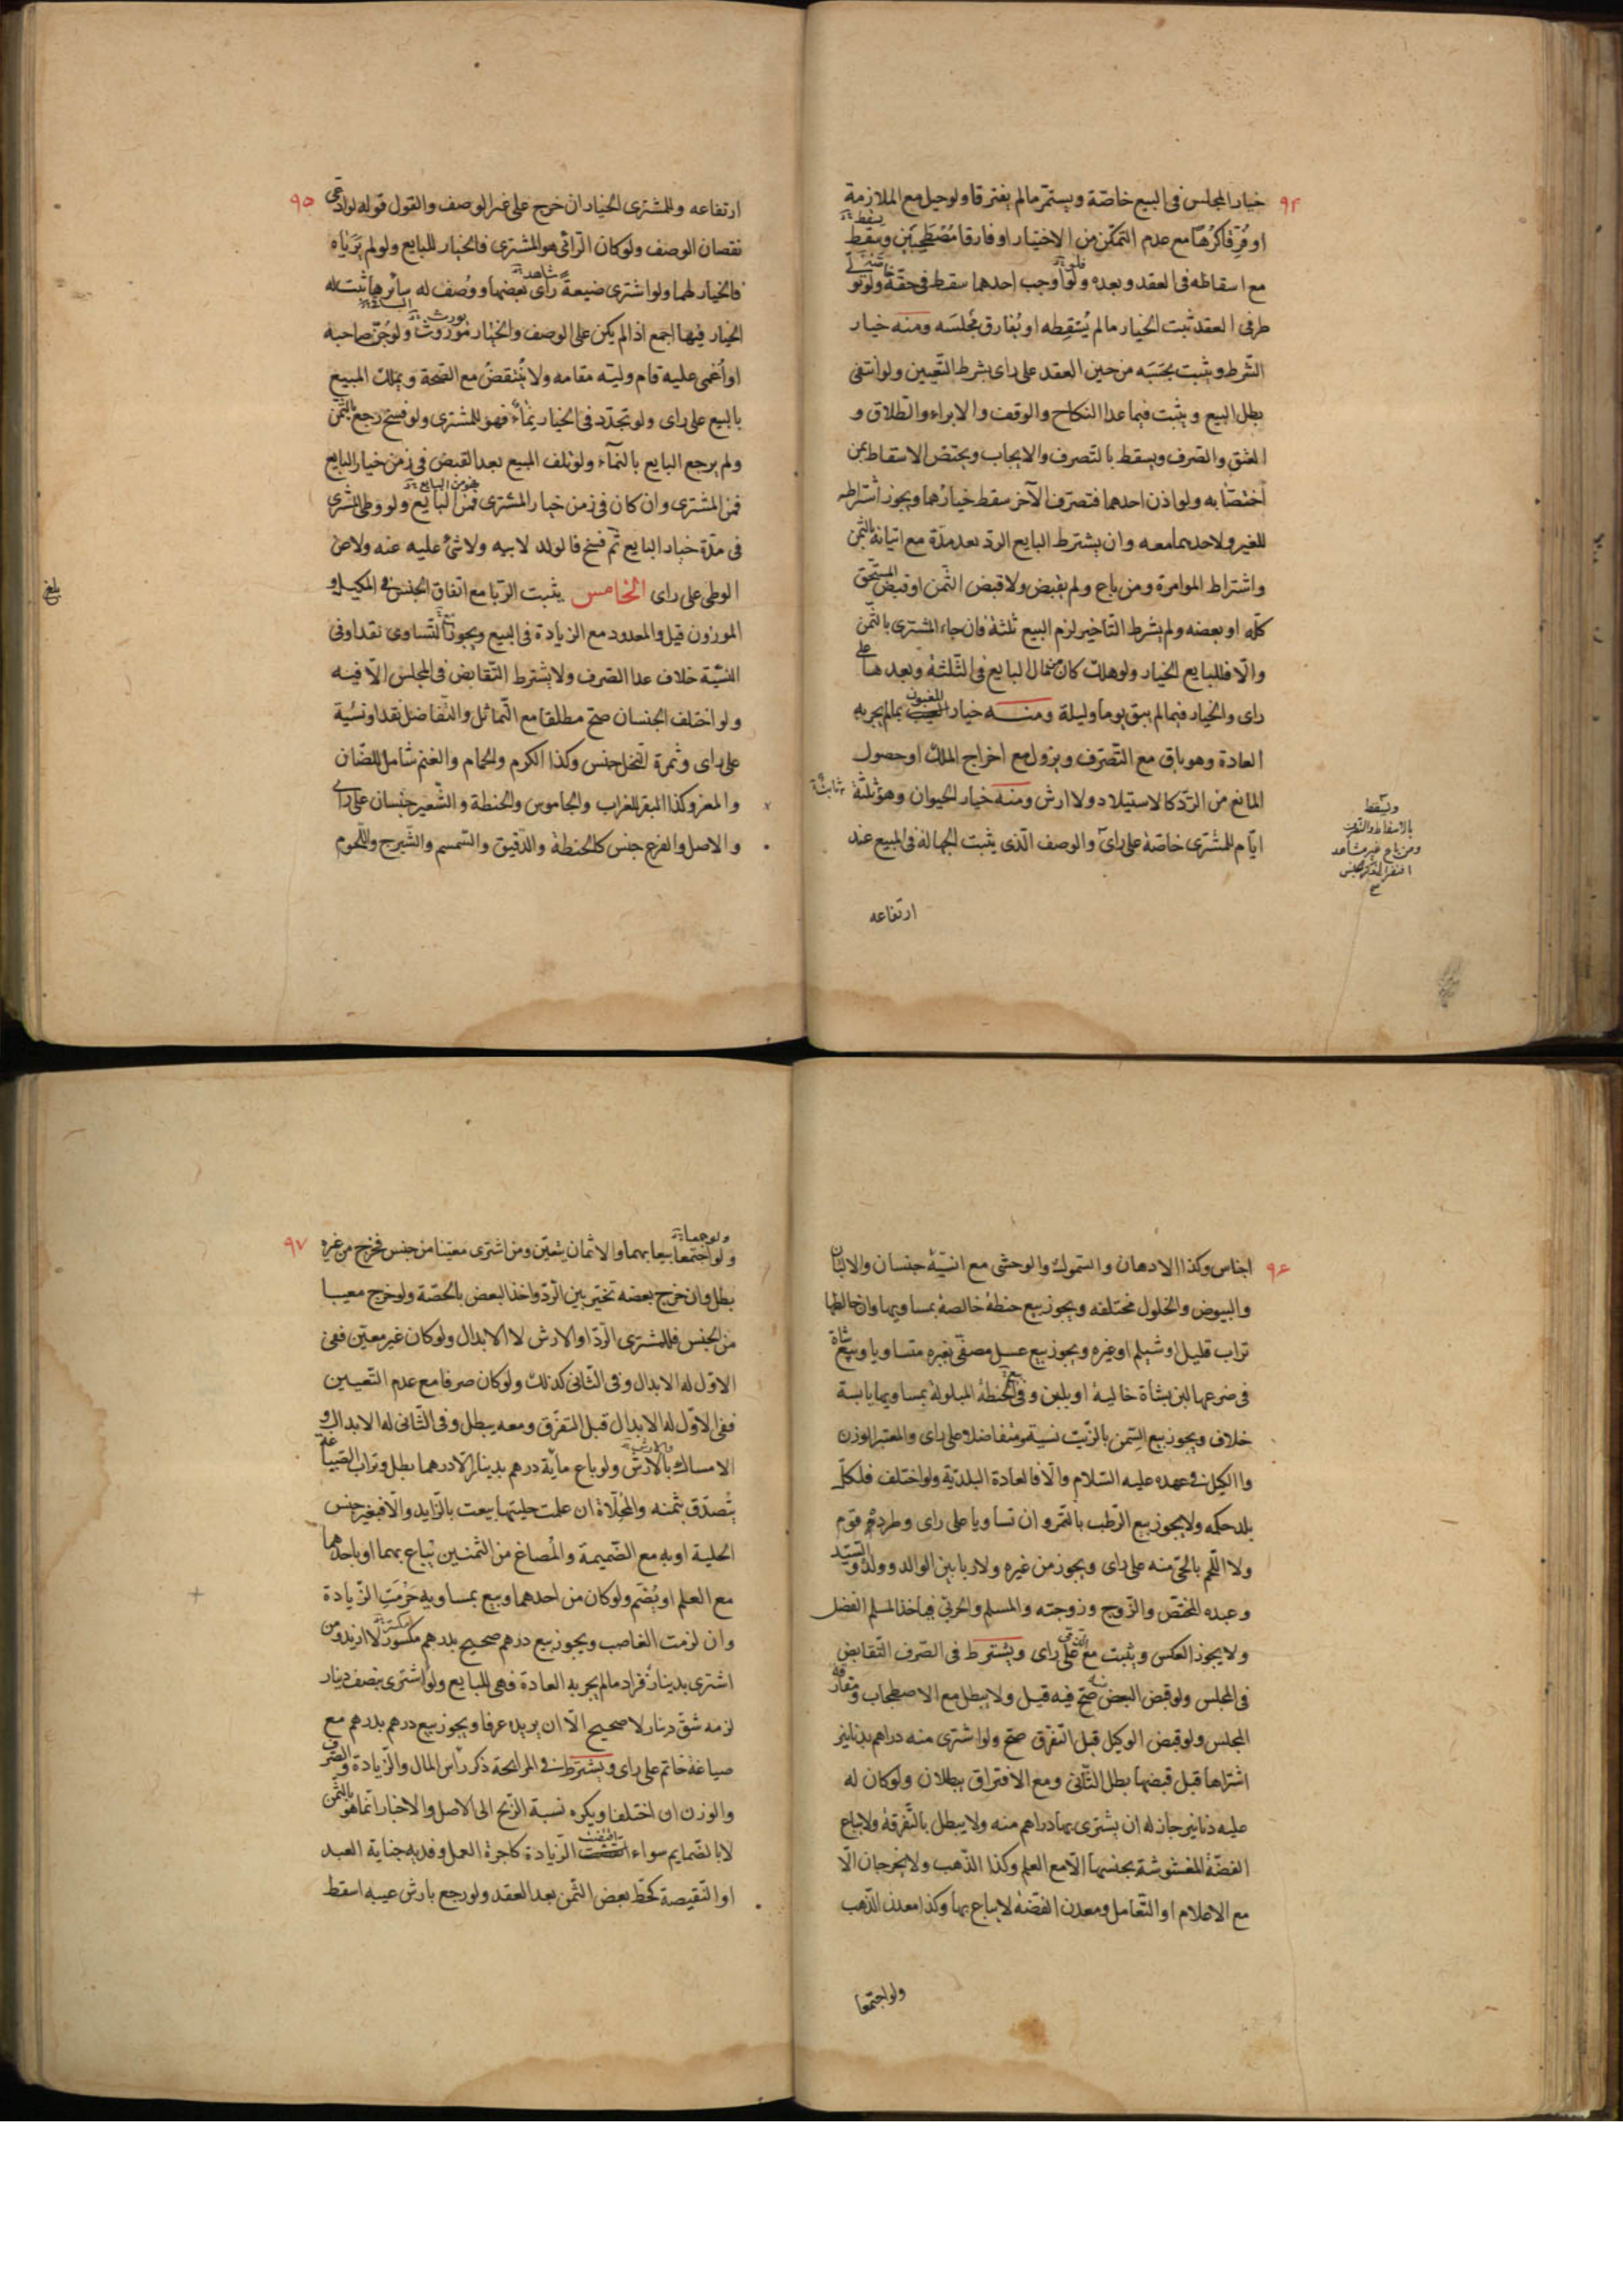 ٩٤
خيار المجلس فى البيع خاصّة ويستمرّ مالم يفترقا ولو حيل مع الملازمة
او فُرِّقا كُرْهًا مع عدم التمكّن من الاختيار او فارقا مُصْطَحِبَيْن ويسقط
يسقط
مع اسقاطه فى العقد وبعده ولو اوجب احدهما سقط فى حقّه ولو تولّى
طرفى العقد ثبت الخيار مالم يُسْقِطه او يُفارق مجلسَه ومنه خيار
الشّرط ويثبت بحَسَبه من حين العقد على راى بشرط التّعيين ولو انتفى
بطل البيع ويثبت فيما عدا النكاح والوقف والابراء والطلاق و
العتق والصّرف ويسقط بالتصرف والايجاب ويختصّ الاسقاط بمن
اختصّا به ولو اذن احدهما فتصرّف الآخر سقط خيارهما ويجوز اشتراطه
للغير ولاحدهما معه وان يشترط البايع الردّ بعد مدّة مع اتيانه بالثمن
واشتراط الموامرة ومن باع ولم يقبض ولا قبض الثّمن او قبض المستحقّ
كلّه او بعضه ولم يشرط التأخير لزم البيع ثلثة فان جاء المشترى بالثّمن
والّا فللبايع الخيار ولو هلك كان من مال البايع فى الثّلثة وبعدها على
راى والخيار فيما لم يبق يوما وليلة ومنه خيار المغبون بما لم يجر به
العادة وهو باق مع التّصرّف ويزول مع اخراج الملك او حصول
المانع من الردّ كالاستيلاد ولا ارش ومنه خيار الحيوان وهو ثلثة
ايّام للمشترى خاصّة على راى والوصف الّذى يثبت الجهالة فى المبيع عند
ارتفاعه
ويسقط
بالاسقاط والتصرف
ومن باع غير مشاهد
افتقر الى ذكر الجنس
٩٥
ارتفاعه وللمشترى الخيار ان خرج على غير الوصف والقول قوله لو ادعى
نقصان الوصف ولو كان الرّائى هو المشترى فالخيار للبايع ولو لم يَرَياه
فالخيار لهما ولو اشترى ضيعةً راى بعضها ووُصف له سائرها ثبت له
شاهد
الخيار فيها اجمع اذا لم يكن على الوصف والخيار موروث ولو جُنّ صاحبه
يورث
او اُغمى عليه قام وليّه مقامه ولا يُنتقضُ مع الصّحة ويملك المبيع
بالبيع على راى ولو تجدّد فى الخيار نماء فهو للمشترى ولو فسخ رجع بالثّمن
ولم يرجع البايع بالنماء ولو تلف المبيع بعد القبض فى زمن خيار البايع
فمن المشترى وان كان فى زمن خيار المشترى فمن البايع ولو وطى المشترى
فى مدّة خيار البايع ثمّ فسخ فالولد لابيه ولا شئ عليه عنه ولا عن
الوطى على راى الخامس يثبت الرّبا مع اتفاق الجنس فى المكيل و
بلغ
الموزون قيل والمعدود مع الزيادة فى البيع ويجوز التّساوى نقدا وفى
النسيّة خلاف عدا الصّرف ولا يشترط التّقابض فى المجلس الّا فيه
ولو اختلف الجنسان صحّ مطلقا مع التّماثل والتّفاضل نقدا ونسيّة
على راى وثمرة النّخل جنس وكذا الكرم والحمام والغنم شامل للضّان
والمعز وكذا البقر للعراب والجاموس والحنطة والشّعير جنسان على راى
والاصل والفرع جنس كالحنطة والدّقيق والسّمسم والشّيرج واللّحوم
٩٦
اجناس وكذا الادهان والسّموك والوحشى مع انسيّه جنسان والالبان
والبيوض والخلول مختلفه ويجوز بيع حنطة خالصة بمساويها وان خالطها
تراب قليل او شيلم او غيره ويجوز بيع عسل مصفّى بغيره متساويا وبيع شاة
فى ضرعها لبن بشاة خالية او بلبن وفى الحنطة المبلولة بمساويها يابسة
خلاف ويجوز بيع السّمن بالزّيت نسية ومتفاضلا على راى والمعتبر الوزن
والكيل فى عهده عليه السّلام والّا فالعادة البلديّة ولو اختلف فلكلّ
بلد حكمه ولا يجوز بيع الرّطب بالتّمر وان تساويا على راى وطرده قوم
ولا اللّحم بالحىّ منه على راى ويجوز من غيره ولا ربا بين الوالد وولده والسّيّد
وعبده المختصّ والزّوج وزوجته والمسلم والحربىّ فياخذ المسلم الفضل
ولا يجوز العكس ويثبت مع الذّمّى على راى ويشترط فى الصّرف التّقابض
فى المجلس ولو قبض البعض صحّ فيه قيل ولا يبطل مع الاصطحاب ومفارقة
المجلس ولو قبض الوكيل قبل التّفرّق صحّ ولو اشترى منه دراهم بدنانير
اشتراها قبل قبضها بطل الثّانى ومع الافتراق يبطلان ولو كان له
عليه دنانير جاز له ان يشترى بها دراهم منه ولا يبطل بالتّفرقة ولا يباع
الفضّة المغشوشة بجنسها الّا مع العلم وكذا الذّهب ولا يخرجان الّا
مع الاعلام او التّعامل ومعدن الفضّة لا يباع بها وكذا معدن الذّهب
ولو اجتمعا
٩٧
ولو جمعا
ولو اجتمعا بيعا بهما والاثمان يتعيّن ومن اشترى معيّنا من جنس فخرج من غيره
بطل وان خرج بعضه تخيّر بين الرّدّ واخذ البعض بالحصّة ولو خرج معيبا
من الجنس فللمشترى الرّدّ او الارش لا الابدال ولو كان غير معيّن ففى
الاوّل له الابدال وفى الثّانى كذلك ولو كان صرفا مع عدم التّعيين
ففى الاوّل له الابدال قبل التفرّق ومعه يبطل وفى الثّانى له الابدال و
الامساك بالارش ولو باع ماية درهم بدينار الّا درهما بطل وتراب الصّياغة
يُتصدّق بثمنه والمُحلّاة ان علمت حليتها بيعت بالزّايد والّا فبغير جنس
الحلية او به مع الضّميمة والمصاغ من الثّمنين يُباع بهما او باحدهما
مع العلم او يُضمّ ولو كان من احدهما وبيع بمساويه حَرُمَتِ الزّيادة
وان لزمت الغاصب ويجوز بيع درهم صحيح بدرهم مكسور لا ازيد ومن
اشترى بدينار فزاد مالم يجر به العادة فهى للبايع ولو اشترى بنصف دينار
لزمه شقّ دينار لا صحيح الّا ان يريد عرفا ويجوز بيع درهم بدرهم مع
صياغة خاتم على راى ويشترط فى المرابحة ذكر راس المال والزّيادة والصّرف
والوزن ان اختلفا ويكره نسبة الرّبح الى الاصل والاخبار انّما هو بالثّمن
لا بالضّمايم سواء اقتضت الزّيادة كاجرة العمل وفديه جناية العبد
او النّقيصة كحطّ بعض الثّمن بعد العقد ولو رجع بارش عيبه اسقط